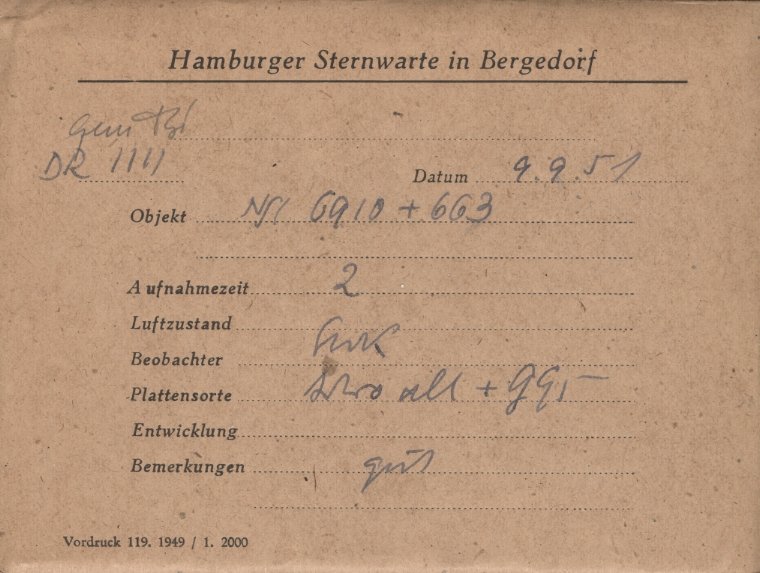 Hamburger Sternwarte in Bergedorf
DR 1111
Datum 9.9.51
Objekt 6910 + 663
Aufnahmezeit 2
Luftzustand
Beobachter
Plattensorte alt + GG5
Entwicklung
Bemerkungen gut
Vordruck 119. 1949 / 1. 2000